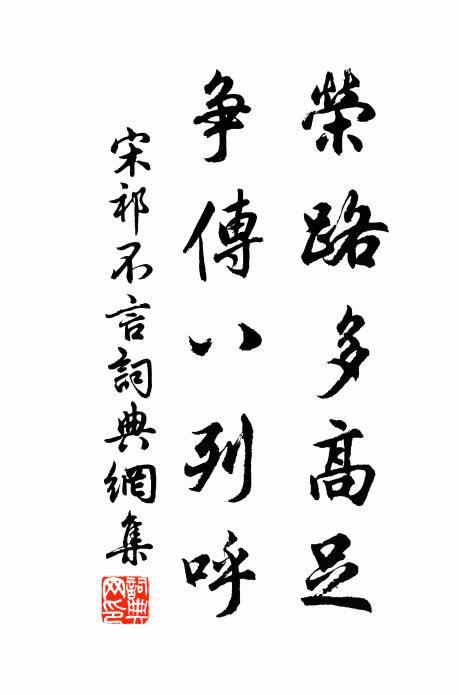 榮路多高足
爭傳八列呼
宋祁不言詞典網集
詞典網印